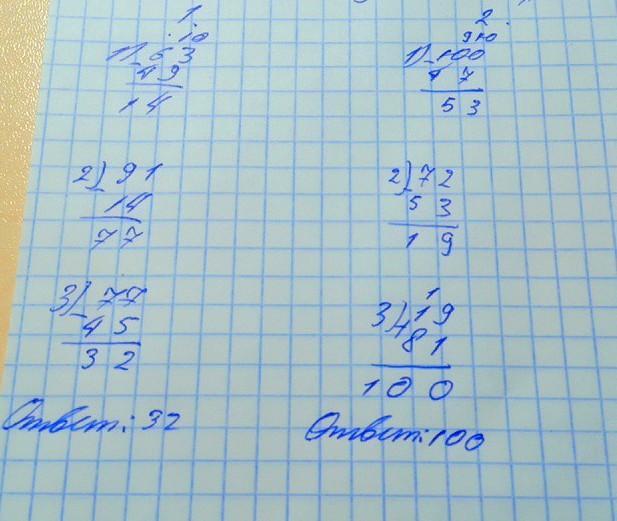 1
. 10
1) - 63
49
14
2) - 91
14
77
3) - 77
45
32
Ответ: 32
2.
9 10
1) - 100
47
53
2) - 72
53
19
1
3) + 19
81
100
Ответ: 100